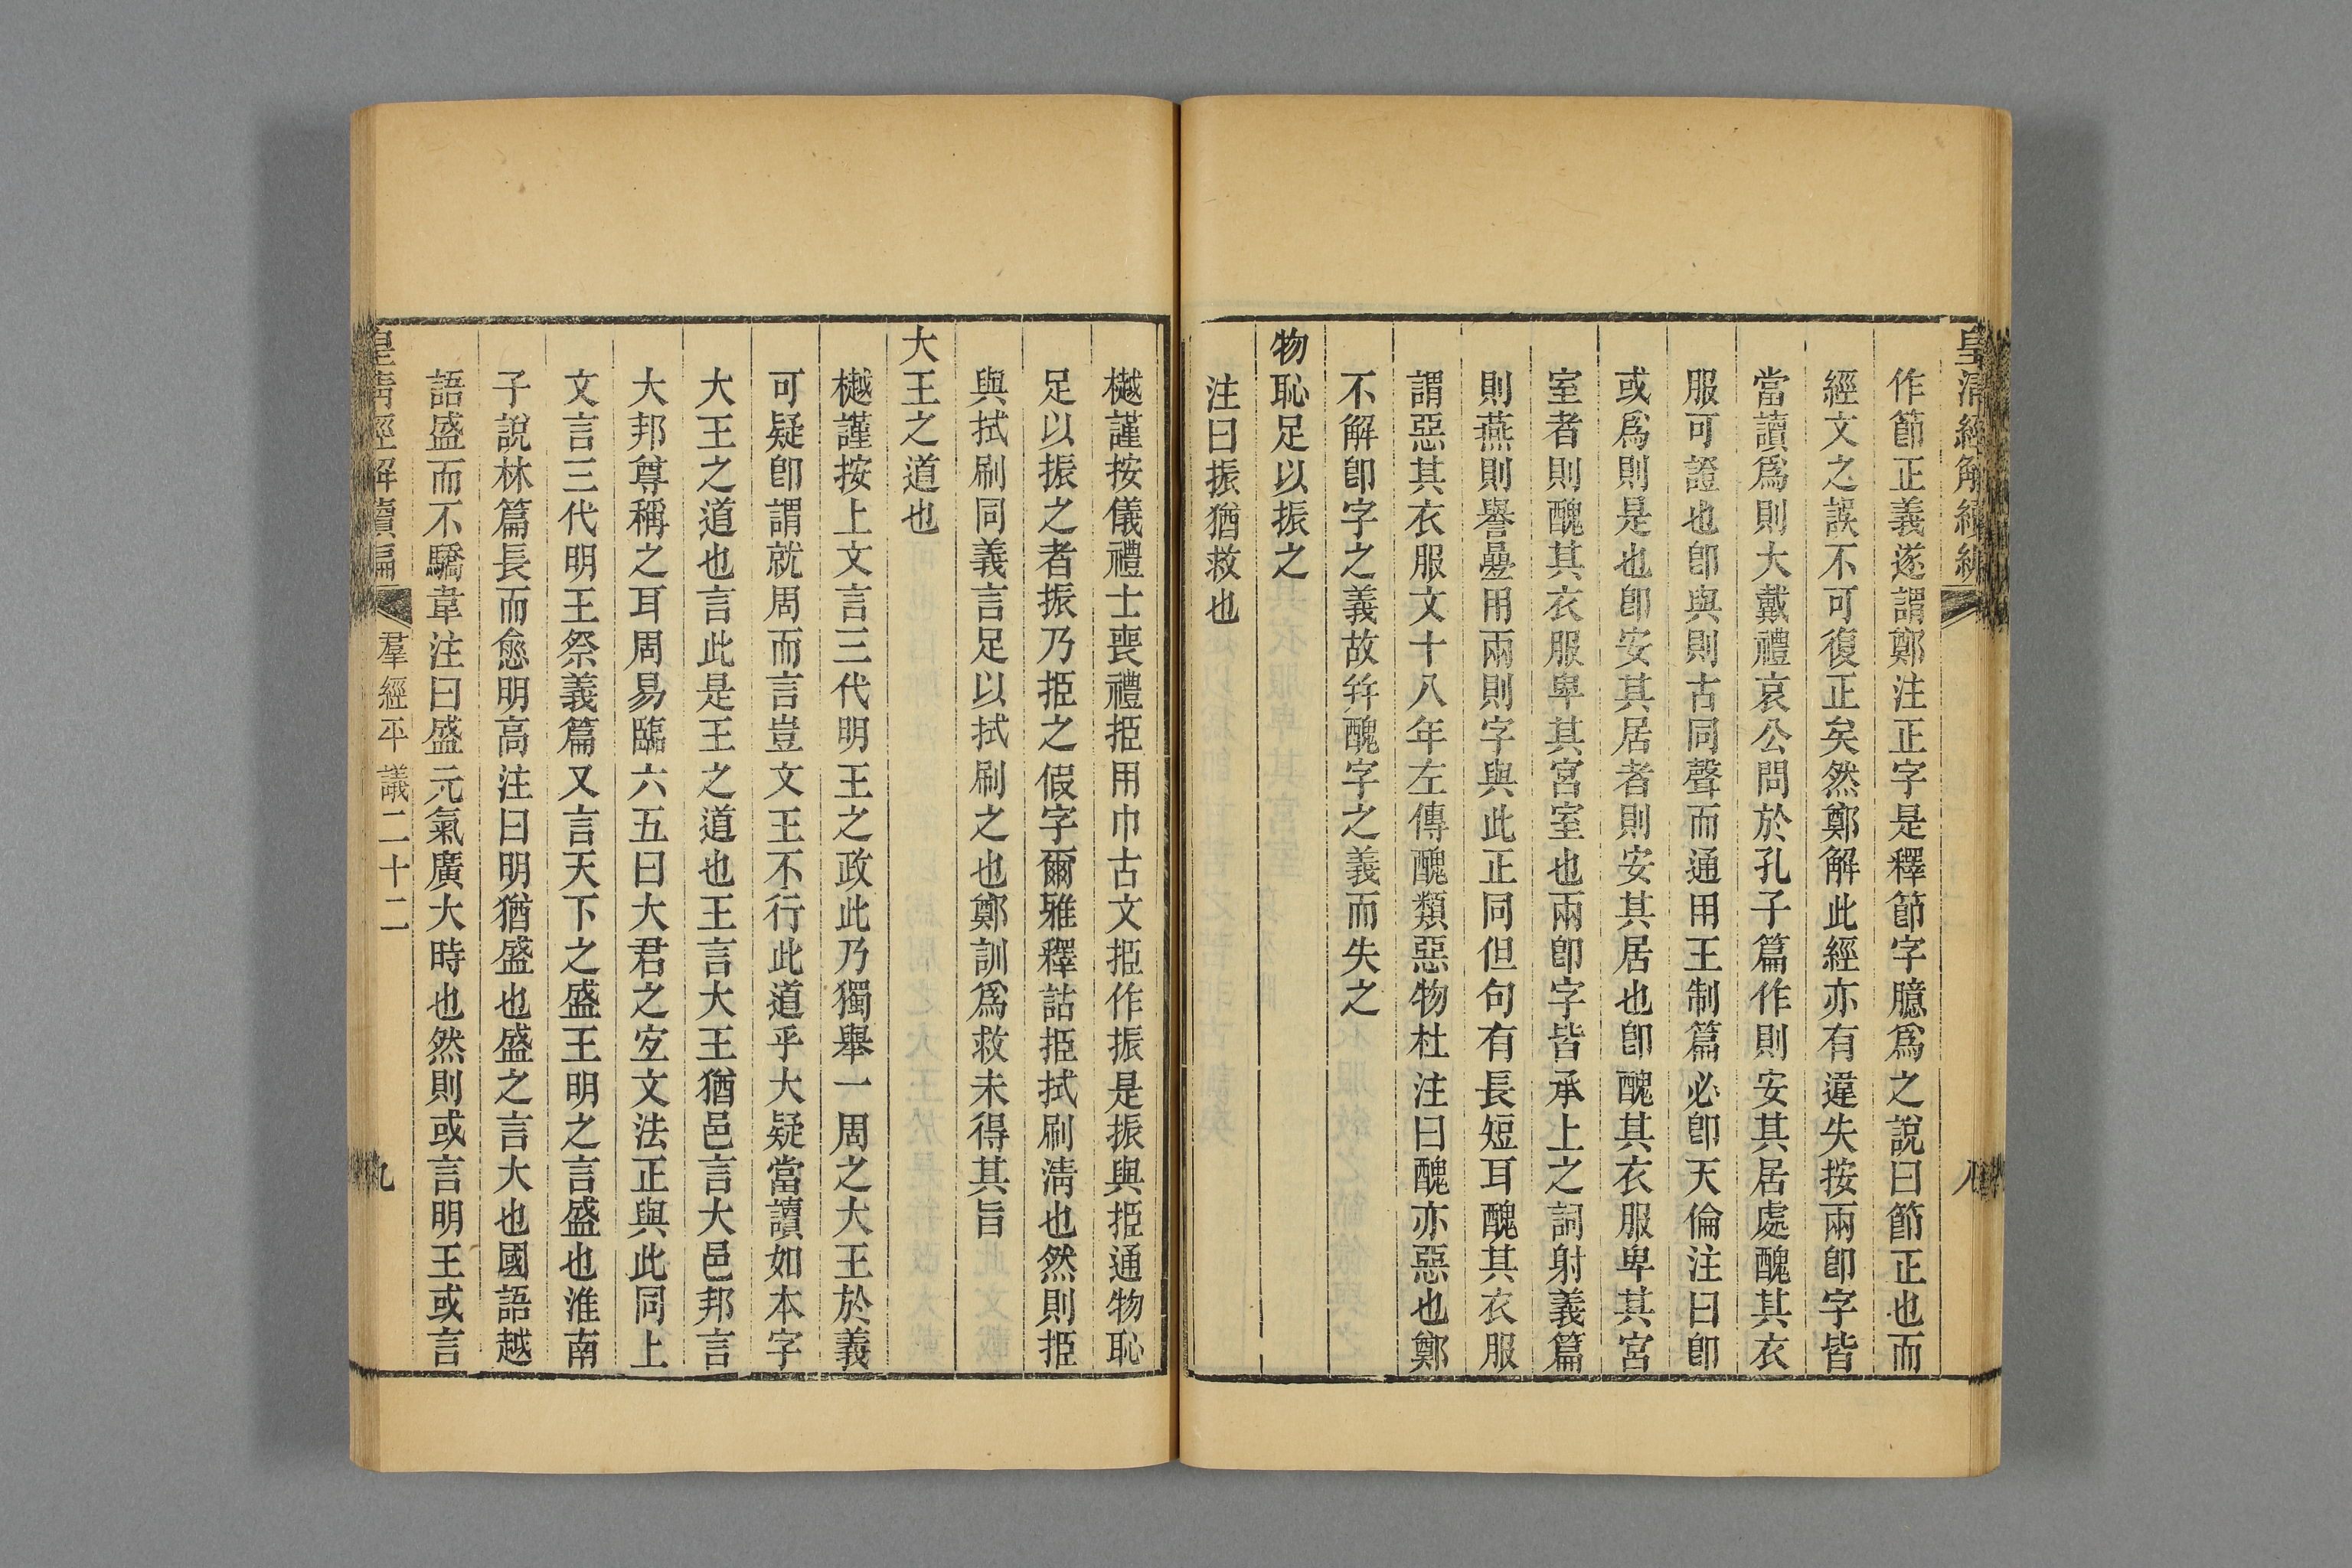 皇清經解續編
八
作節正義遂謂鄭注正字是釋節字臆爲之說曰節正也而
經文之誤不可復正矣然鄭解此經亦有違失按兩卽字皆
當讀爲則大戴禮哀公問於孔子篇作則安其居處醜其衣
服可證也卽與則古同聲而通用王制篇必卽天倫注曰卽
或爲則是也卽安其居者則安其居也卽醜其衣服卑其宮
室者則醜其衣服卑其宮室也兩卽字皆承上之詞射義篇
則燕則譽曡用兩則字與此正同但句有長短耳醜其衣服
謂惡其衣服文十八年左傳醜類惡物杜注曰醜亦惡也鄭
不解卽字之義故幷醜字之義而失之
物恥足以振之
注曰振猶救也
樾謹按儀禮士喪禮挋用巾古文挋作振是振與挋通物恥
足以振之者振乃挋之假字爾雅釋詁挋拭刷淸也然則挋
與拭刷同義言足以拭刷之也鄭訓爲救未得其旨
大王之道也
樾謹按上文言三代明王之政此乃獨舉一周之大王於義
可疑卽謂就周而言豈文王不行此道乎大疑當讀如本字
大王之道也言此是王之道也王言大王猶邑言大邑邦言
大邦尊稱之耳周易臨六五曰大君之宐文法正與此同上
文言三代明王祭義篇又言天下之盛王明之言盛也淮南
子說林篇長而愈明高注曰明猶盛也盛之言大也國語越
語盛而不驕韋注曰盛元氣廣大時也然則或言明王或言
皇淸經解續編
羣經平議二十二
九